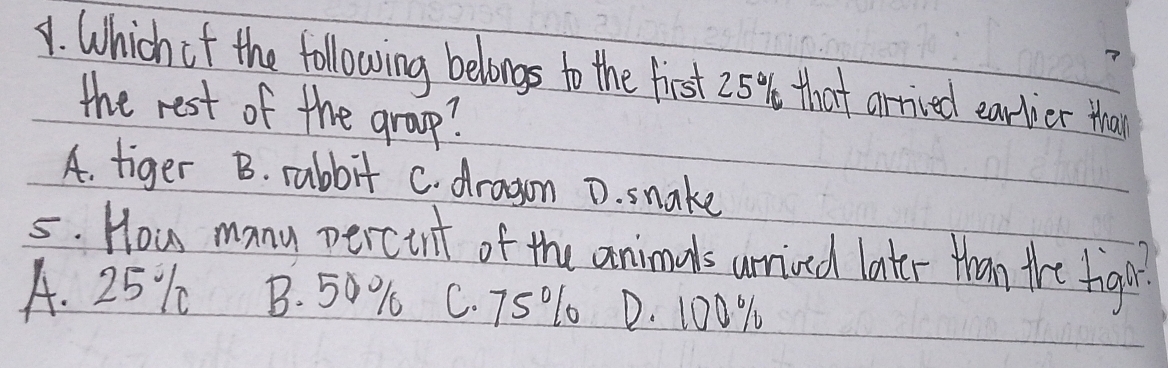 4. Which of the following belongs to the first 25% that arrived earlier than
the rest of the group?
A. tiger B. rabbit C. dragon D. snake
5. How many percent of the animals arrived later than the tiger?
A. 25% B. 50% C. 75% D. 100%